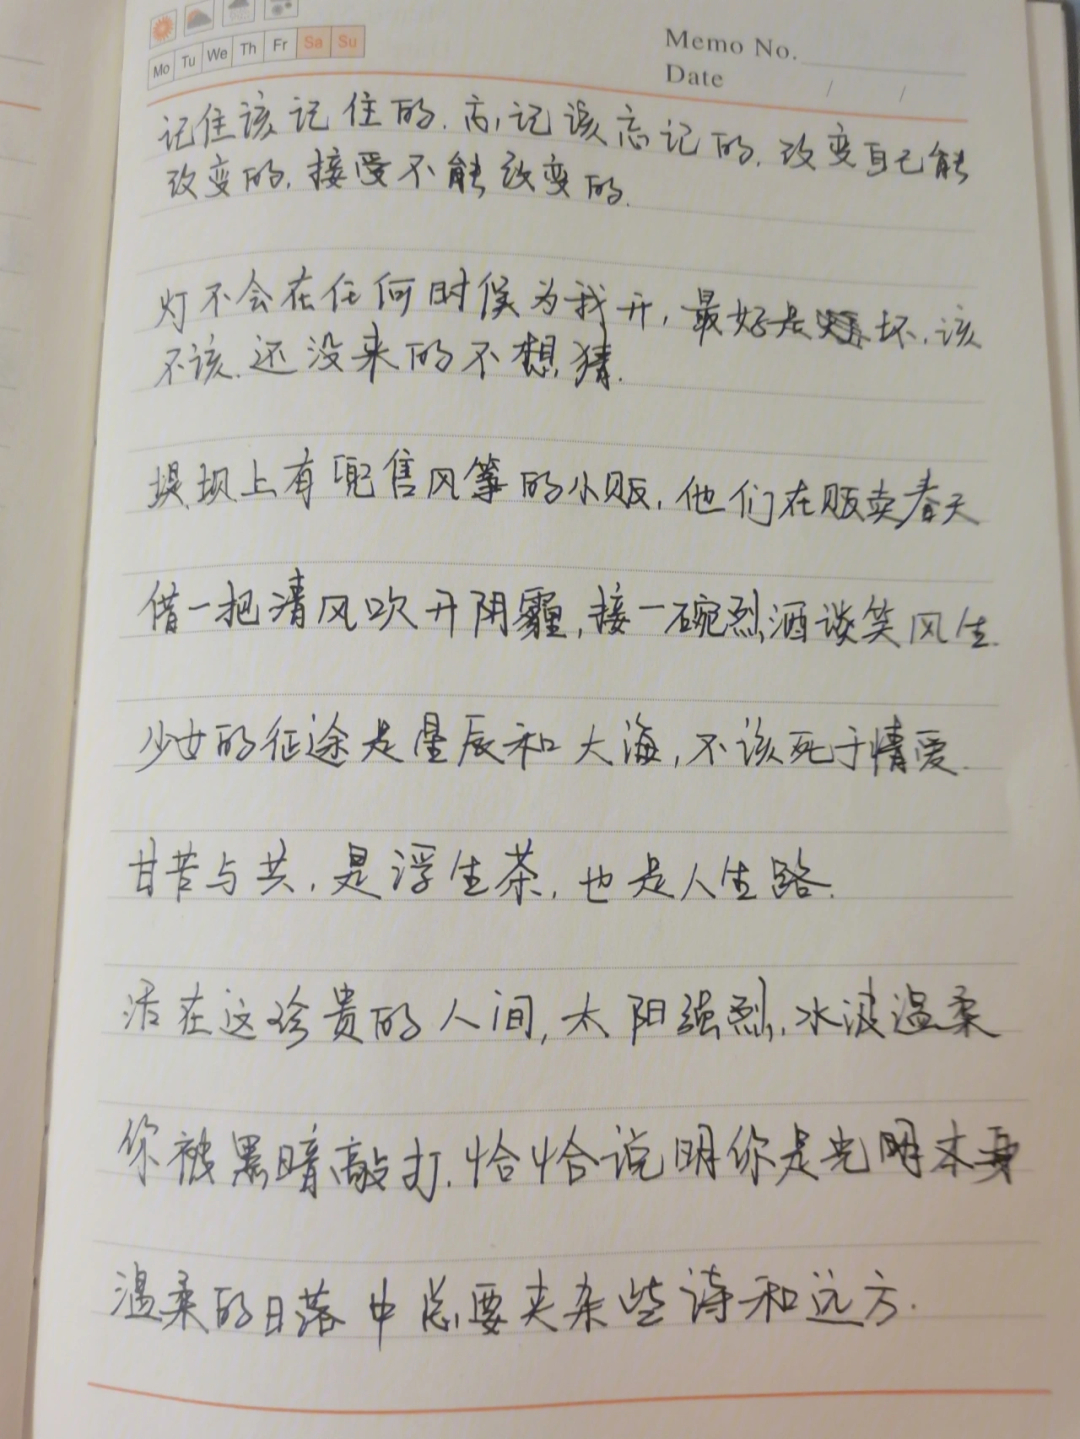 Mo Tu We Th Fr Sa Su
Memo No.
Date / /
记住该记住的.忘记该忘记的.改变自己能
改变的.接受不能改变的.
灯不会在任何时候为我开,最好是坏.该
不该.还没来的不想猜.
堤坝上有兜售风筝的小贩,他们在贩卖春天
借一把清风吹开阴霾,接一碗烈酒谈笑风生.
少女的征途是星辰和大海,不该死于情爱.
甘苦与共.是浮生茶.也是人生路.
活在这珍贵的人间,太阳强烈.水波温柔
你被黑暗敲打.恰恰说明你是光明本身
温柔的日落中总要夹杂些诗和远方.